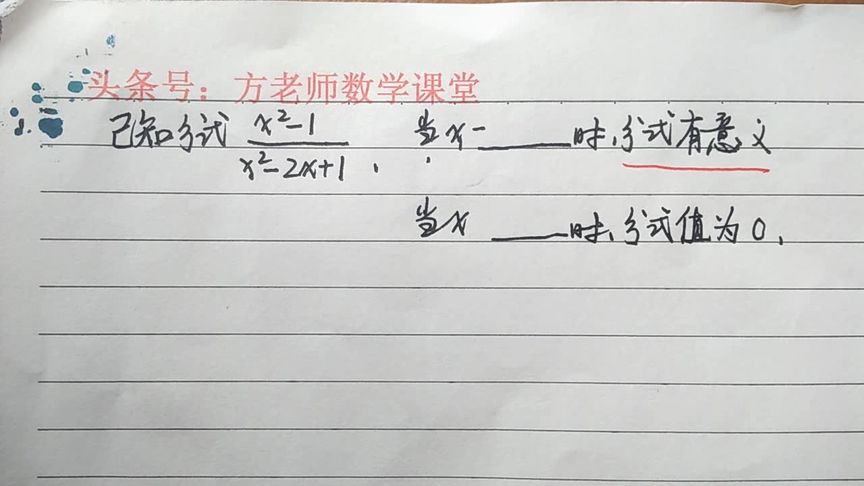 头条号：方老师数学课堂
8. 已知分式 x²-1/x²-2x+1， 当x ____时，分式有意义
当x ____时，分式值为0，